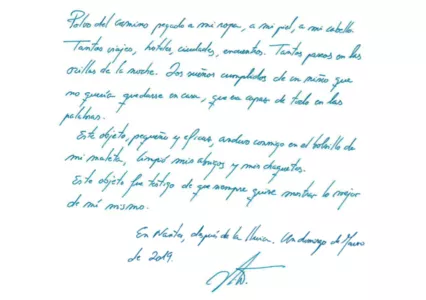 Polvo del camino pegado a mi ropa, a mi piel, a mi cabello.
Tantos viajes, hoteles, ciudades, encuentros. Tantos paseos en las
orillas de la noche. Los sueños cumplidos de un niño que
no quería quedarse en casa, que era capaz de todo en las
palabras.
Este objeto, pequeño y eficaz, anduvo conmigo en el bolsillo de
mi maleta, limpió mis abrigos y mis chaquetas.
Este objeto fue testigo de que siempre quise mostrar lo mejor
de mí mismo.
En Nantes, después de la lluvia. Un domingo de
de 2019.